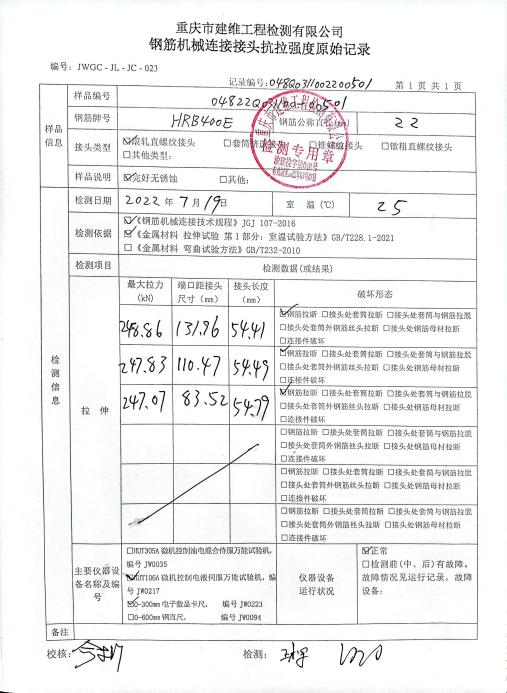 重庆市建维工程检测有限公司
钢筋机械连接接头抗拉强度原始记录
编号：JWGC-JL-JC-023
记录编号:048Q0311002200501 第 1 页 共 1 页
样品信息
样品编号
钢筋牌号 HRB400E 钢筋公称直径(mm) 22
接头类型 ☑滚轧直螺纹接头 □套筒挤压接头 □锥螺纹接头 □镦粗直螺纹接头
□其他类型:
样品说明 ☑完好无锈蚀 □其他:
检测专用章
检测信息
检测日期 2022 年 7 月 19 日 室 温(℃) 25
检测依据
☑《钢筋机械连接技术规程》JGJ 107-2016
☑《金属材料 拉伸试验 第1部分：室温试验方法》GB/T228.1-2021
□《金属材料 弯曲试验方法》GB/T232-2010
检测项目 检测数据(或结果)
拉 伸
最大拉力(kN) 端口距接头尺寸(mm) 接头长度(mm) 破坏形态
248.86 131.96 54.41
☑钢筋拉断 □接头处套筒拉断 □接头处套筒与钢筋拉脱
□接头处套筒外钢筋丝头拉断 □接头处钢筋母材拉断
□连接件破坏
247.83 110.47 54.49
☑钢筋拉断 □接头处套筒拉断 □接头处套筒与钢筋拉脱
□接头处套筒外钢筋丝头拉断 □接头处钢筋母材拉断
□连接件破坏
247.07 83.52 54.79
☑钢筋拉断 □接头处套筒拉断 □接头处套筒与钢筋拉脱
□接头处套筒外钢筋丝头拉断 □接头处钢筋母材拉断
□连接件破坏
□钢筋拉断 □接头处套筒拉断 □接头处套筒与钢筋拉脱
□接头处套筒外钢筋丝头拉断 □接头处钢筋母材拉断
□连接件破坏
□钢筋拉断 □接头处套筒拉断 □接头处套筒与钢筋拉脱
□接头处套筒外钢筋丝头拉断 □接头处钢筋母材拉断
□连接件破坏
□钢筋拉断 □接头处套筒拉断 □接头处套筒与钢筋拉脱
□接头处套筒外钢筋丝头拉断 □接头处钢筋母材拉断
□连接件破坏
主要仪器设备名称及编号
□HUT305A 微机控制油电混合伺服万能试验机，
编号 JW0035
☑HUT106A 微机控制电液伺服万能试验机，编
号 JW0217
☑0-300mm 电子数显卡尺， 编号 JW0223
□0-600mm 钢直尺， 编号 JW0094
仪器设备运行状况
☑正常
□检测前(中、后)有故障。
故障情况见运行记录，故障
设备：
备注
校核： 检测：